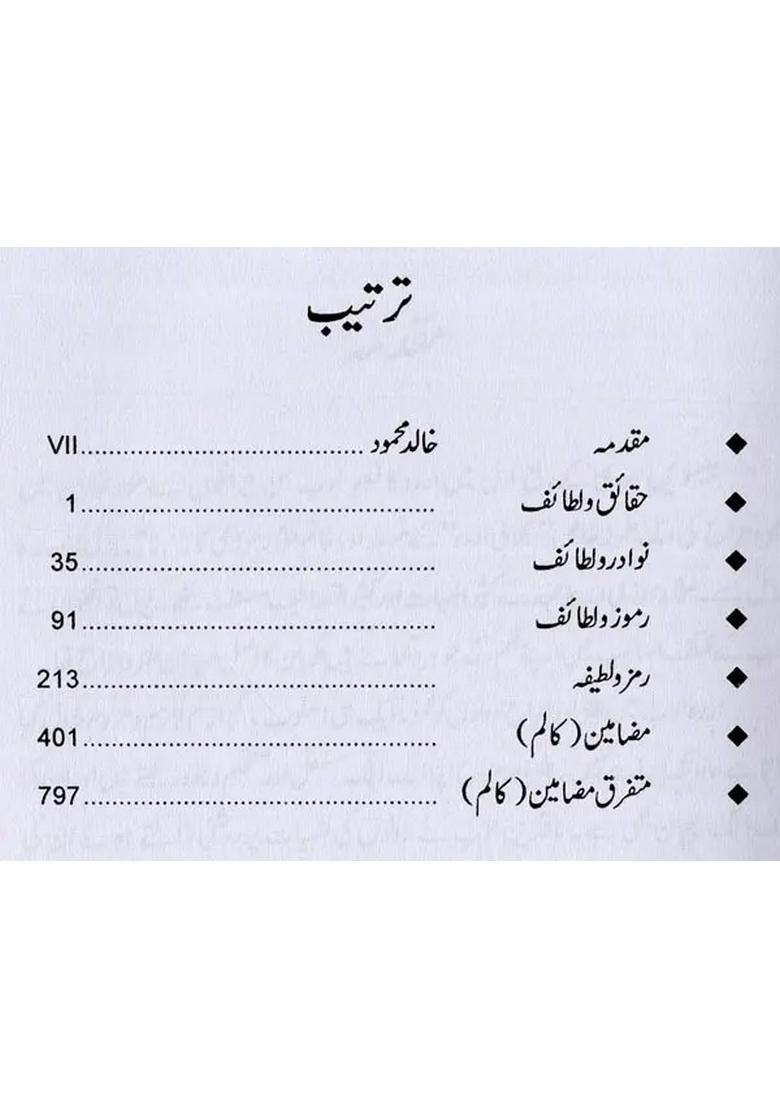 ترتیب
◆ مقدمہ خالد محمود ........................................ VII
◆ حقائق و لطائف ........................................ 1
◆ نوادر و لطائف ........................................ 35
◆ رموز و لطائف ........................................ 91
◆ رمز و لطیفہ ........................................ 213
◆ مضامین (کالم) ........................................ 401
◆ متفرق مضامین (کالم) ........................................ 797